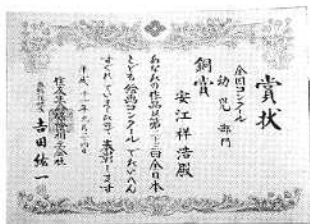 賞状
全国コンクール
幼児部門
銅賞
安江祥浩殿
あなたの作品は第二十三回全日本
こども絵画コンクールでたいへん
すぐれていましたので表彰します
平成十一年九月二十四日
住友生命保険相互会社
吉田紘一